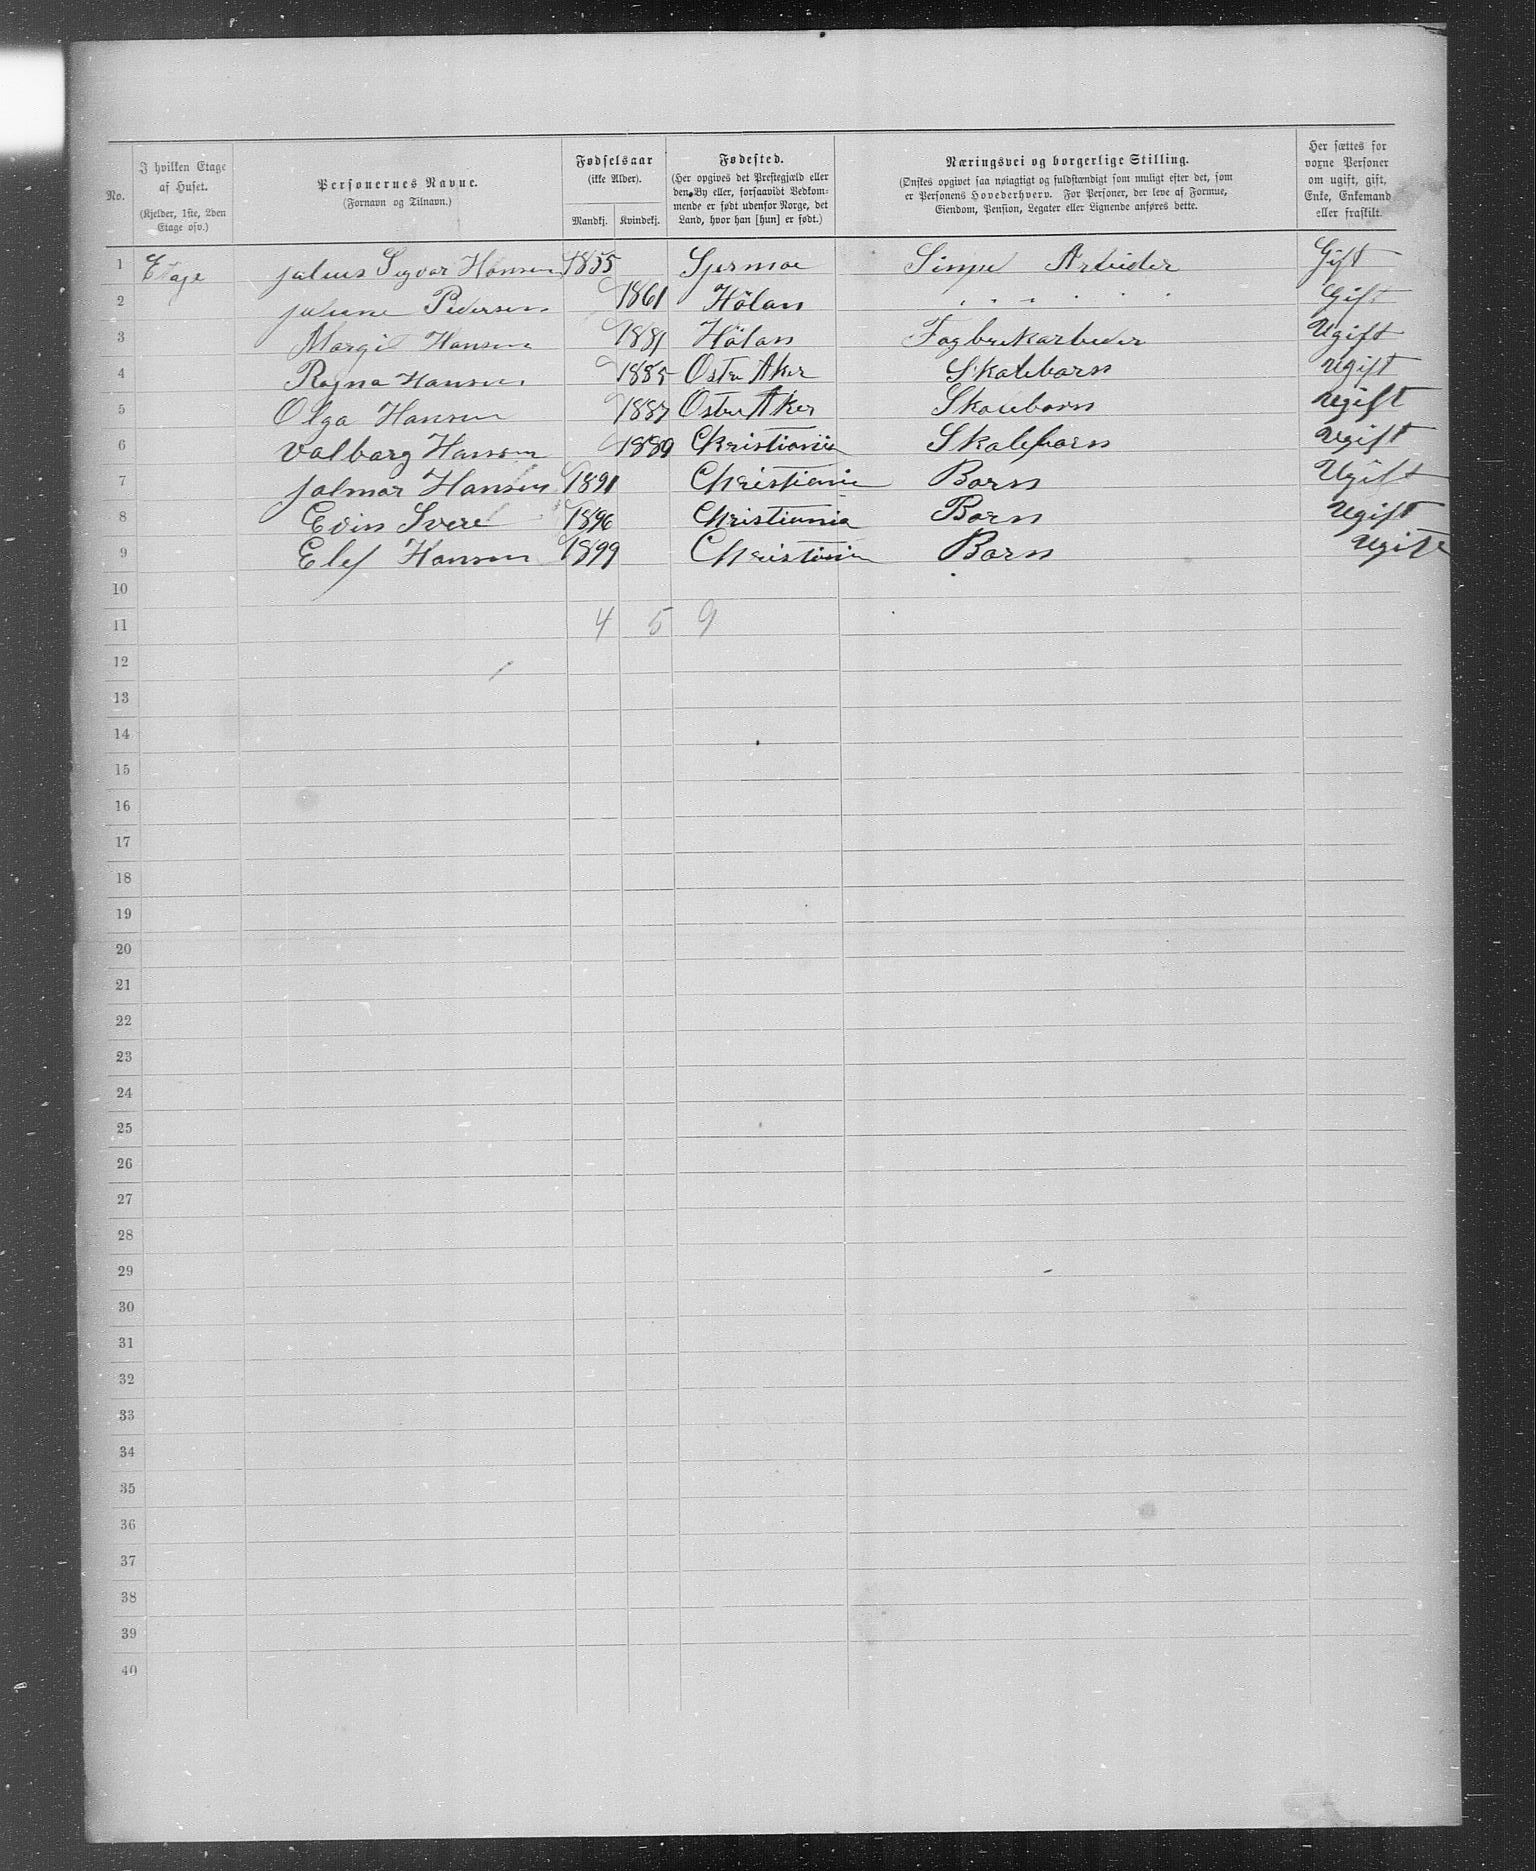 No.
I hvilken Etage af Huset.
(Kjelder, 1ste, 2den Etage osv.)
Personernes Navne.
(Fornavn og Tilnavn.)
Fødselsaar
(ikke Alder).
Mandkj. Kvindekj.
Fødested.
(Her opgives det Prestegjæld eller
den By eller, forsaavidt Vedkom-
mende er født udenfor Norge, det
Land, hvor han [hun] er født.)
Næringsvei og borgerlige Stilling.
(Ønskes opgivet saa nøiagtigt og fuldstændigt som muligt efter det, som
er Personens Hovederhverv. For Personer, der leve af Formue,
Eiendom, Pension, Legater eller Lignende anføres dette.
Her sættes for
voxne Personer
om ugift, gift,
Enke, Enkemand
eller fraskilt.
1 Etage julius Sigvar Hansen 1855 Arbeider Gift
2 juliane Pedersen 1861 Hölan " " " " " " Gift
3 Margit Hansen 1881 Hölan Fagbrekarbeider Ugift
4 Ragna Hansen 1885 Ostre Aker Skolebarn Ugift
5 Olga Hansen 1887 Ostre Aker Skolebarn Ugift
6 Valborg Hansen 1889 Christiania Skolebarn Ugift
7 jalmar Hansen 1891 Christiania Barn Ugift
8 Edin Svere 1896 Christiania Barn Ugift
9 Elef Hansen 1899 Christiania Barn Ugift
10
11 4 5 9
12
13
14
15
16
17
18
19
20
21
22
23
24
25
26
27
28
29
30
31
32
33
34
35
36
37
38
39
40